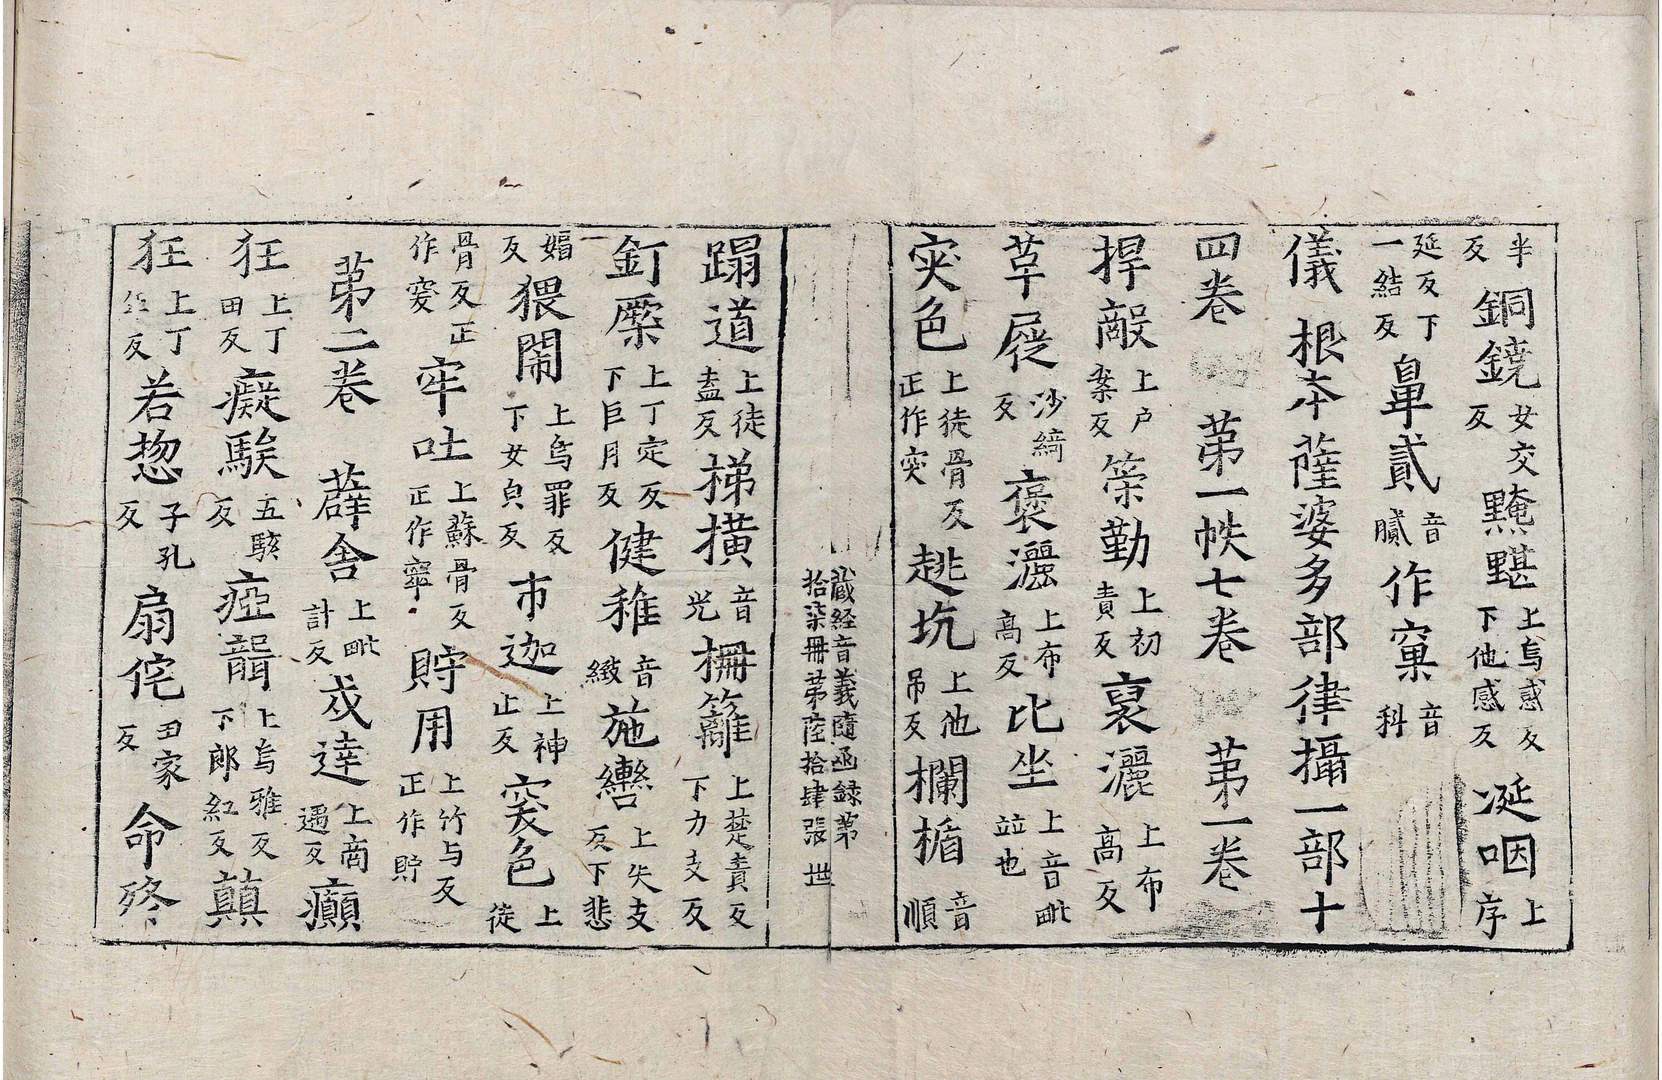 半反銅鐃女交反黤黮上烏感反下他感反涎咽上序
延反下一結反鼻貳音膩作窠音科
儀 根本薩婆多部律攝一部十
四卷 苐一帙七卷 苐一卷
捍敵上户桒反䇿勤上初責反裹灑上布高反
草屣沙綺反襃灑上布高反比坐上音毗竝也
突色上徒骨反正作突趒坑上他吊反欄楯音順
藏経音義隨函録苐拾柒冊苐陸拾肆張 世
蹋道上徒盍反梯橫音光柵籬上楚責反下力支反
釘橜上丁定反下巨月反健稚音緻施轡上失支反下悲
媚反猥鬧上烏罪反下女皃反市迦上神止反突色上徒
骨反正作突牢吐上蘇骨反正作窣貯用上竹与反正作貯
苐二卷 薜舍上毗計反戍達上商遇反癲
狂上丁田反癡騃五駭反瘂聾上烏雅反下郎紅反蕻
狂上丁反若惣子孔反扇侘丑家反命終